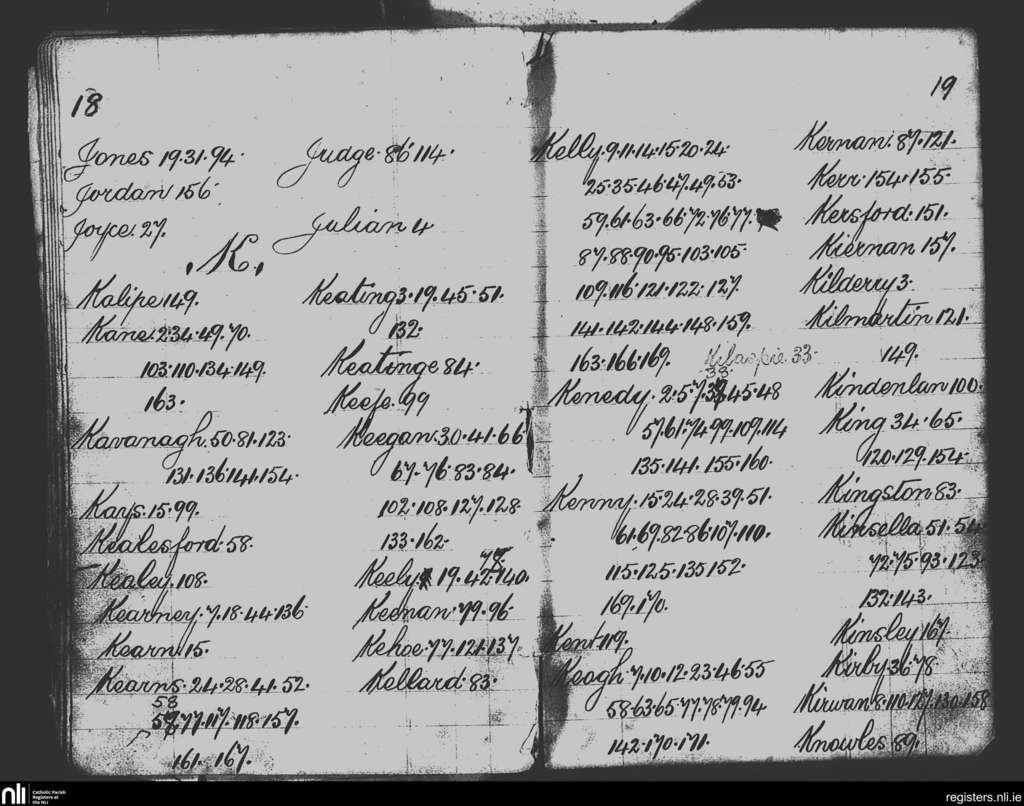 18
Jones 19.31.94.
Jordan 156
Joyce. 27.
Judge. 86 114.
Julian 4
.K.
Kalipe 149.
Kane. 2.34.49.70.
103.110.134.149.
163.
Kavanagh. 50.81.123.
131.136.141.154.
Kays. 15.99.
Kealesford. 58.
Kealey. 108.
Kearney. 7.18.44.136
Kearn 15.
Kearns. 24.28.41.52.
58
77.117.118.157.
161. 167.
Keating 3.19.45.51.
132.
Keatinge 84.
Keefe. 99
Keegan. 30.41.66
67.76.83.84.
102.108.127.128
133.162.
78
Keely 19.42.140.
Keenan. 79.96.
Kehoe. 77.121.137.
Kellard. 83.
19
Kelly. 9.11.14.15.20.24.
25.35.46.47.49.53.
59.61.63.66.72.76.77.
87.88.90.95.103.105.
109.116.121.122.127.
141.142.144.148.159.
163.166.169.
33.
38
Kenedy. 2.5.7. 45.48
57.61.74.99.109.114
135.141.155.160.
Kenny. 15.24.28.39.51.
61.69.82.86.107.110.
115.125.135.152.
169.170.
Kent 119.
Keogh 7.10.12.23.46.55
58.63.65.77.78.79.94
142.170.171.
Kernan. 87.121.
Kerr. 154.155.
Kersford. 151.
Kiernan 157.
Kilderry 3.
Kilmartin 121.
149.
Kindenlan 100.
King 34.65.
120.129.154.
Kingston 83.
Kinsella 51.54
72.75.93.123
132.143.
Kinsley 167.
Kirby 36.78
Kirwan 8.110.127.130.158
Knowles 89.
nli
Catholic Parish
Registers at
the NLI
registers.nli.ie